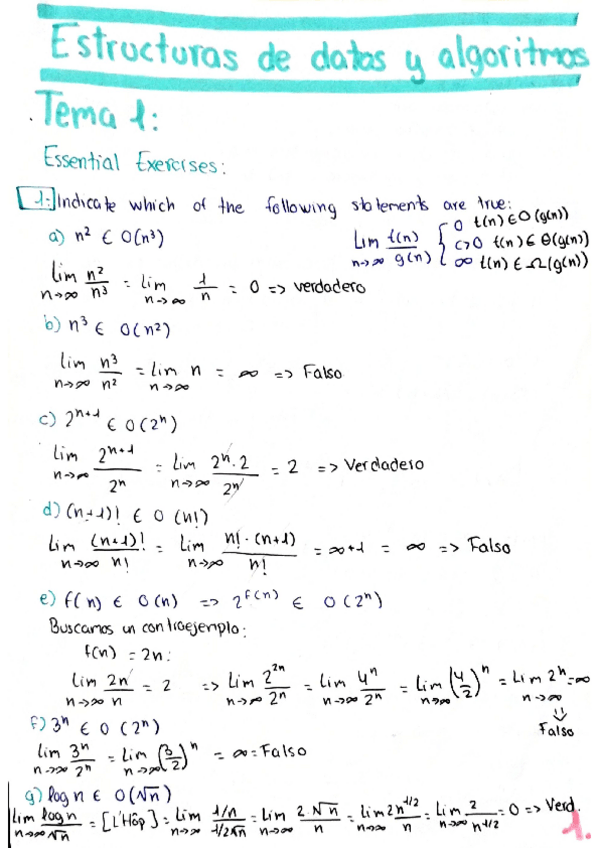 Estructuras de datos y algoritmos
Tema 1:
Essential Exercises:
1. Indicate which of the following statements are true:
a) n² ∈ O(n³)
Lim n→∞ f(n)/g(n) { 0 f(n) ∈ O(g(n))
c>0 f(n) ∈ Θ(g(n))
∞ f(n) ∈ Ω(g(n))
lim n→∞ n²/n³ = lim n→∞ 1/n = 0 => verdadero
b) n³ ∈ O(n²)
lim n→∞ n³/n² = lim n→∞ n = ∞ => Falso
c) 2ⁿ⁺¹ ∈ O(2ⁿ)
lim n→∞ 2ⁿ⁺¹/2ⁿ = Lim n→∞ 2ⁿ·2/2ⁿ = 2 => Verdadero
d) (n+1)! ∈ O(n!)
Lim n→∞ (n+1)!/n! = Lim n→∞ n!·(n+1)/n! = ∞+1 = ∞ => Falso
e) f(n) ∈ O(n) => 2^f(n) ∈ O(2ⁿ)
Buscamos un contraejemplo:
f(n) = 2n:
Lim n→∞ 2n/n = 2 => Lim n→∞ 2²ⁿ/2ⁿ = Lim n→∞ 4ⁿ/2ⁿ = Lim n→∞ (4/2)ⁿ = Lim n→∞ 2ⁿ = ∞
⇓
Falso
f) 3ⁿ ∈ O(2ⁿ)
Lim n→∞ 3ⁿ/2ⁿ = Lim n→∞ (3/2)ⁿ = ∞ = Falso
g) log n ∈ O(√n)
Lim n→∞ log n/√n = [L'Hôp] = Lim n→∞ (1/n)/(1/2√n) = Lim n→∞ 2√n/n = Lim n→∞ 2n^1/2/n = Lim n→∞ 2/n^1/2 = 0 => Verd.
1.